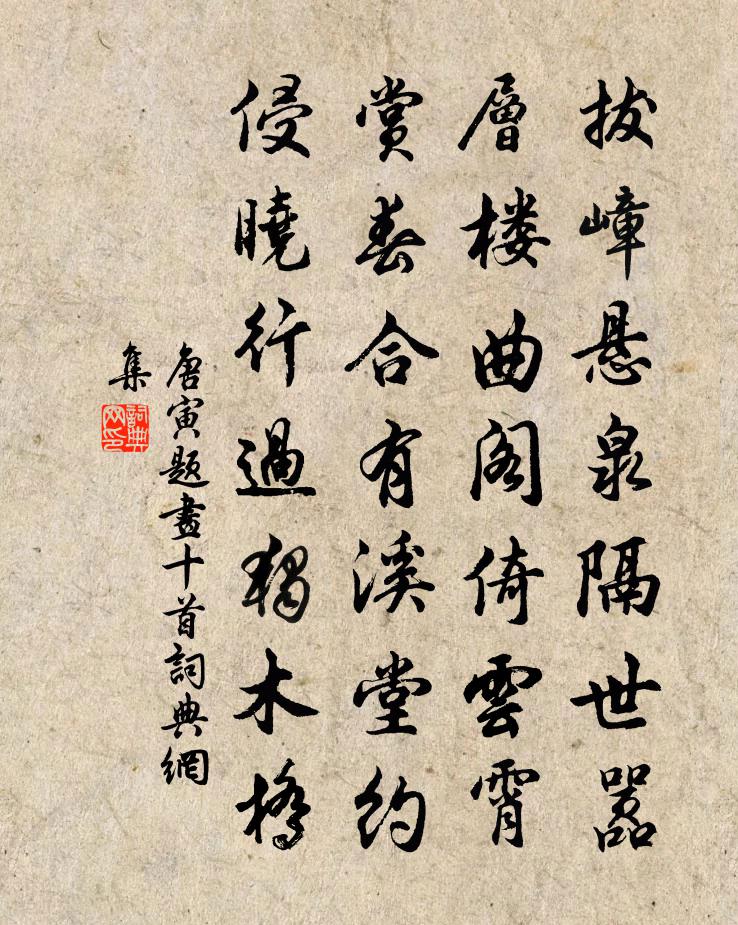 拔嶂悬泉隔世嚣
層楼曲阁倚雲霄
賞春合有溪堂約
侵曉行過獨木橋
唐寅题畫十首詞典網
集
詞典网印